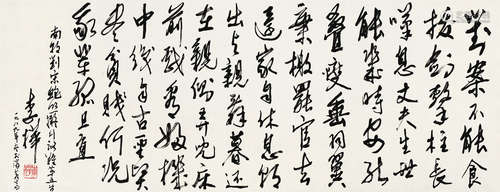 對案不能食
拔劍擊柱長
嘆息丈夫生世
能幾時安能
疊燮垂羽翼
棄檄罷官去
還家自休息朝
出与親辞暮還
在親側弄兒床
前戲看婦機
中織自古聖賢
盡貧賤何況
我輩孤且直
南朝劉宋鮑明遠擬行路難
李鐸
一九八九年